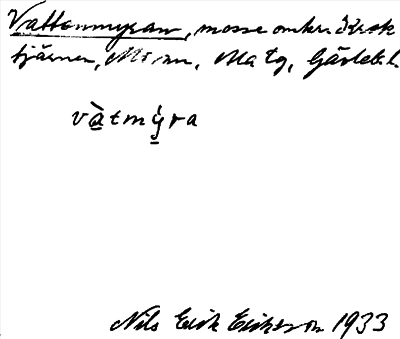 Vattenmyran, mosse omkr. Krok
tjärnen, Mo sn, Ala tg, Gävleb. l.
vàtmýra
Nils Erik Eriksson 1933